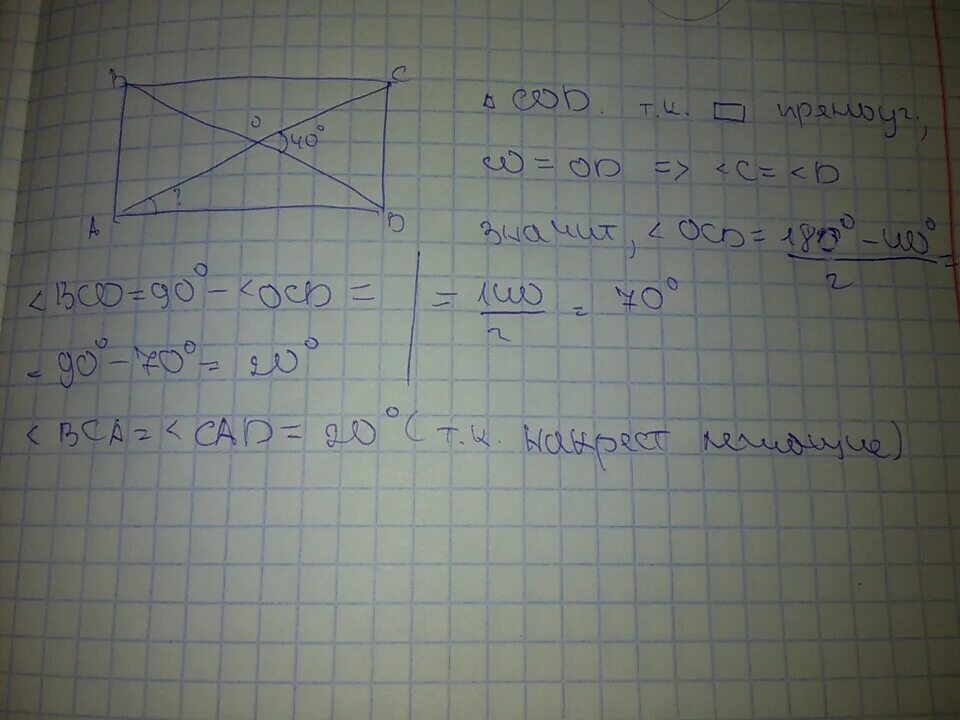 B C
O 40°
?
A D
△ COD. т.к. ▭ прямоуг,
CO = OD => <C = <D
значит, < OCD = (180° - 40°)/2 =
= 140/2 = 70°
<BCO = 90° - <OCD =
= 90° - 70° = 20°
<BCA = <CAD = 20° (т.к. накрест лежащие)